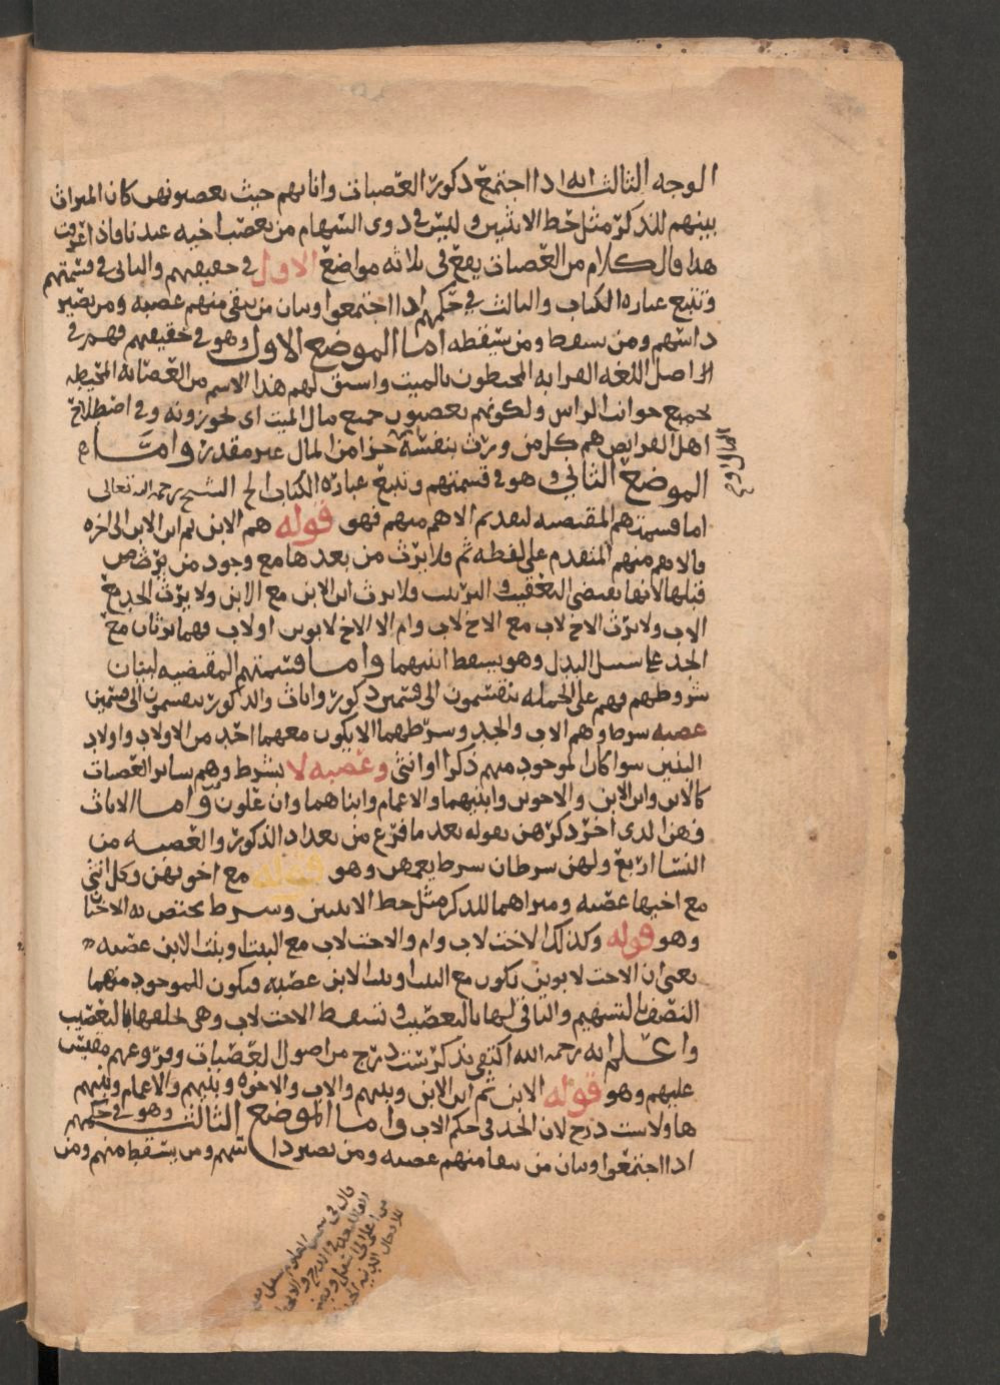 الوجه الثالث انه اذا اجتمع ذكور العصبات واناثهم حيث يعصبونهن كان الميراث
بينهم للذكر مثل حظ الانثيين وليس في ذوي السهام من يعصب اخيه عندنا فاذا عرفت
هذا فالكلام من العصبات يقع في ثلاثه مواضع الاول في حقيقتهم والثاني في قسمتهم
وتتبع عباره الكتاب والثالث في حكمهم اذا اجتمعوا وبيان من يبقى منهم عصبه ومن يصير
ذا سهم ومن يسقط ومن يسقطه اما الموضع الاول وهو في حقيقتهم فهم في
اصل اللغه القرابه المحيطون بالميت واشتق لهم هذا الاسم من العصابه المحيطه
بجميع جوانب الراس ولكونهم يعصبون جميع مال الميت اي يحوزونه وفي اصطلاح
اهل الفرايض هم كل من ورث بنفسه جزا من المال غير مقدر واما
الموضع الثاني وهو في قسمتهم وتتبع عباره الكتاب الخ الشيخ رحمه الله تعالى
اما قسمتهم المقتضيه لتقديم الاهم منهم فهو قوله هم الابن ثم ابن الابن الى اخره
فالاهم منهم المتقدم على لفظه ثم فلا يرث من بعدها مع وجود من يرث من
قبلها لانها تقتضي التعقيب والترتيب فلا يرث ابن الابن مع الابن ولا يرث الجد مع
الاب ولا يرث الاخ لاب مع الاخ لاب وام الا الاخ لابوين او لاب فهما يرثان مع
الجد على سبيل البدل وهو يسقط ابنيهما واما قسمتهم المقتضيه لبيان
شروطهم فهم على الجمله ينقسمون الى قسمين ذكور واناث والذكور ينقسمون الى قسمين
عصبه بشرط وهم الاب والجد وشرطهما الا يكون معهما احد من الاولاد واولاد
البنين سوا كان الموجود منهم ذكرا او انثى وعصبه لا بشرط وهم ساير العصبات
كالابن وابن الابن والاخوين وابنيهما والاعمام وابناهما وان علون واما الاناث
فهن الذي اخر ذكرهن بقوله بعد ما فرغ من تعداد الذكور والعصبه من
النسا اربع ولهن شرطان شرط يعمهن وهو قوله مع اخوتهن وكل انثى
مع اخيها عصبه وميراهما للذكر مثل حظ الانثيين وشرط يختص به الاختان
وهو قوله وكذلك الاخت لاب وام والاخت لاب مع البنت وبنت الابن عصبه
يعني ان الاخت لابوين تكون مع البنت او بنت الابن عصبه فيكون للموجود منهما
النصف بالتسهيم والباقي لها بالتعصيب وتسقط الاخت لاب وهي تخلفها بالتعصيب
واعلم انه رحمه الله اكتفى بذكر ست درج من اصول العصبات وفروعهم مقيس
عليهم وهو قوله الابن ثم ابن الابن وبنيهم والاب والاخوه وبنيهم والاعمام وبنيهم
هاولا ست درج لان الجد في حكم الاب واما الموضع الثالث وهو في حكمهم
اذا اجتمعوا وبيان من يبقا منهم عصبه ومن يصير ذا سهم ومن يسقط منهم ومن